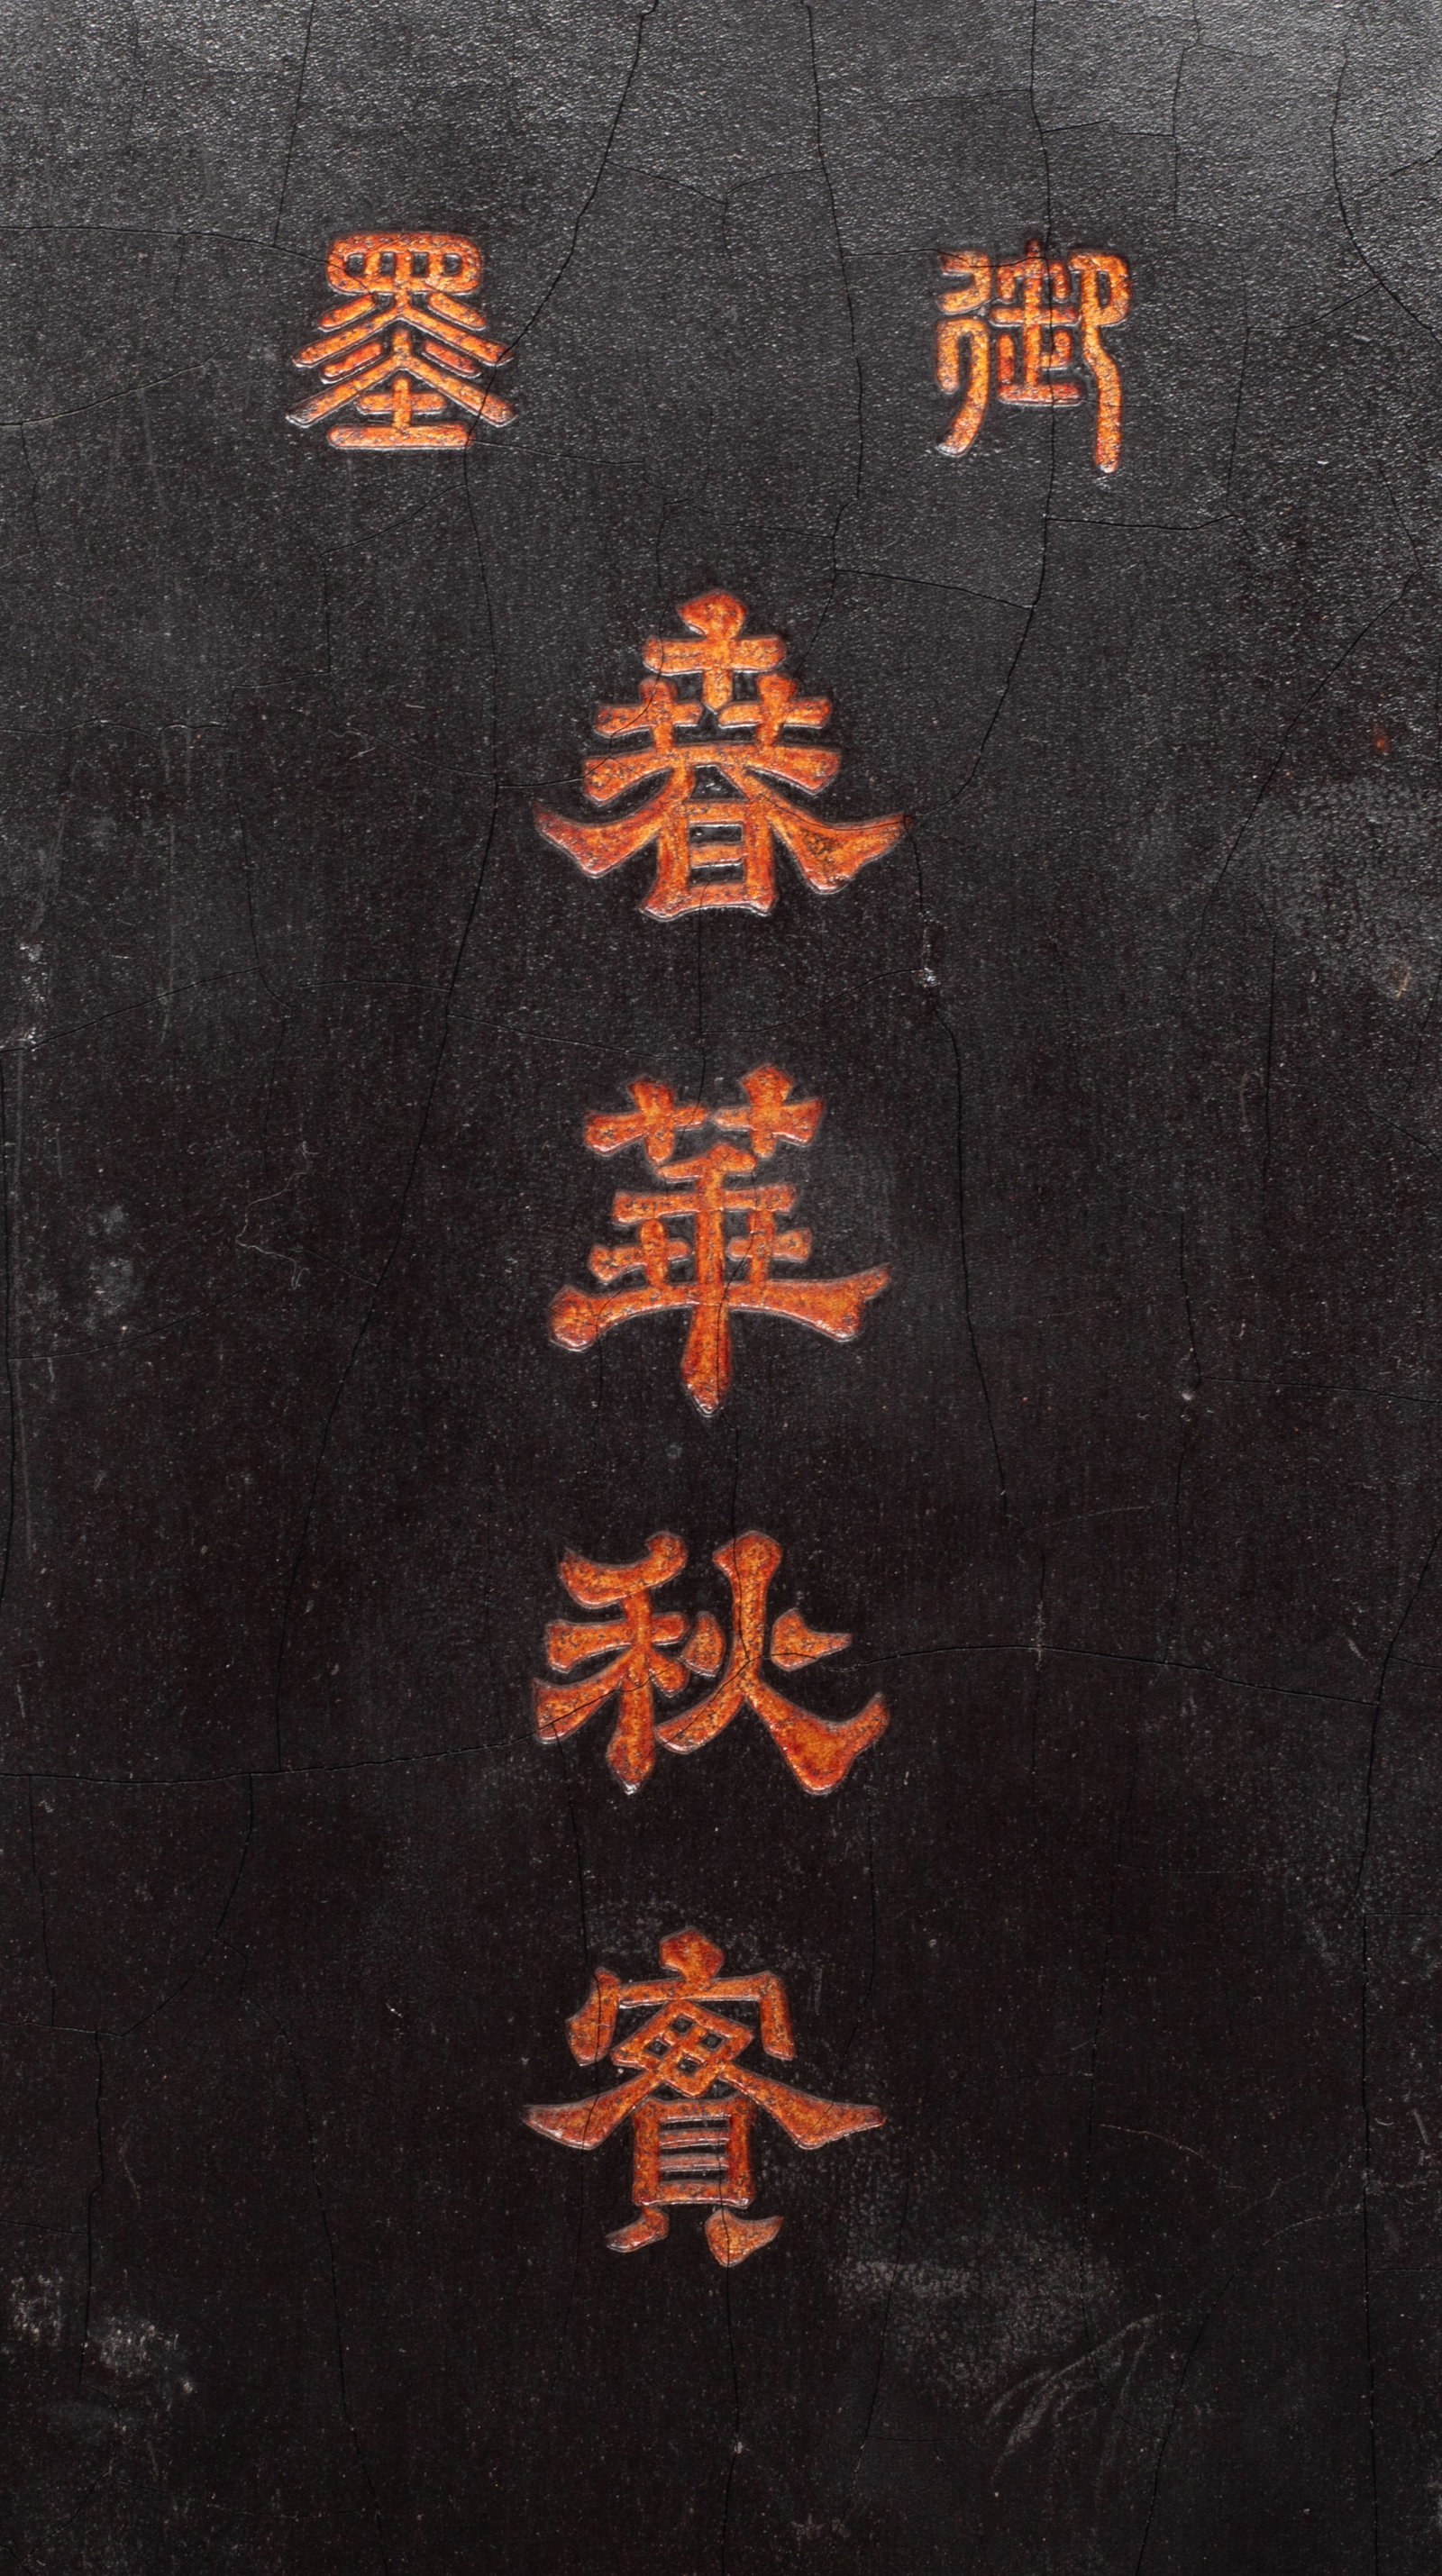 御墨
春華秋實